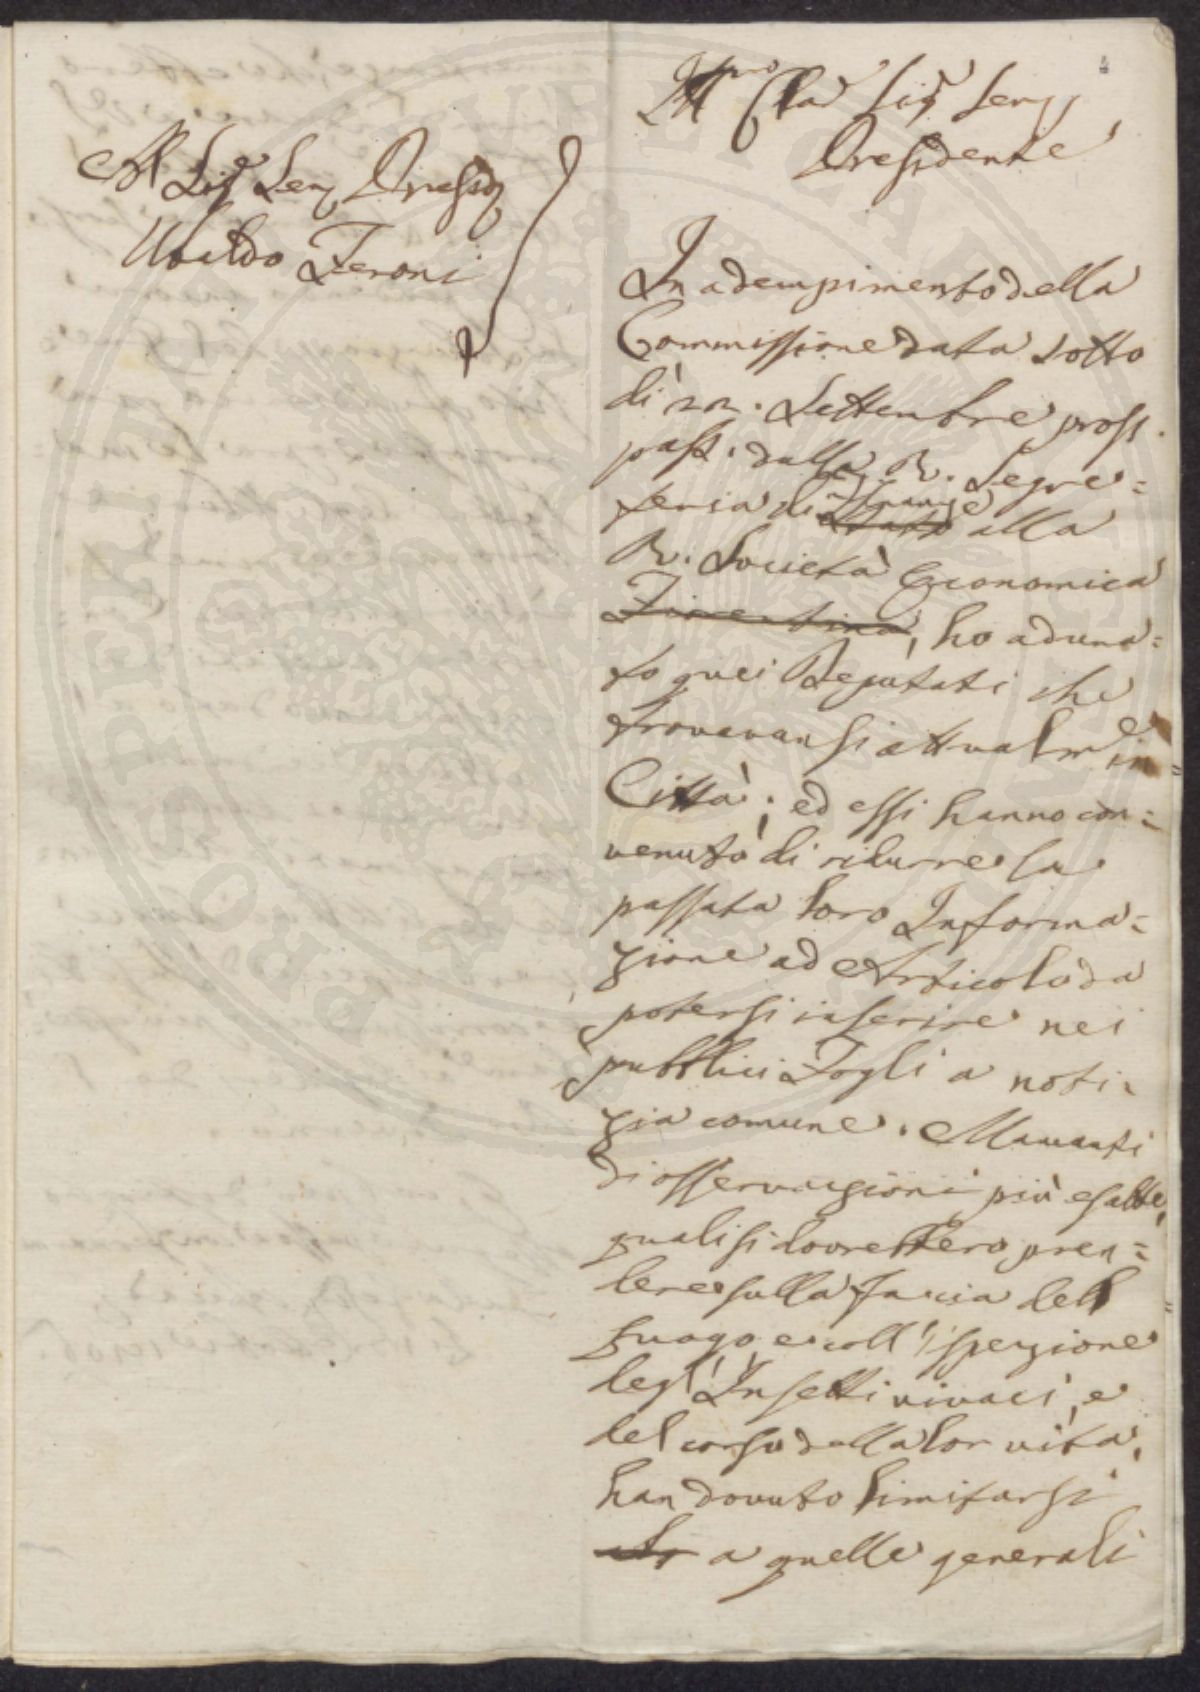 Al Sig.r Sen. Presid.
Ubaldo Feroni
Ill.mo Cla Sig.r Sen.
Presidente
In adempimento della
Commissione data sotto
dì 22. Settembre pross.
pass. dalla R. Segre=
teria di Finanze alla
R. Società Economica
Fiorentina, ho aduna=
to quei Deputati che
trovavansi attualm.e in
Città; ed essi hanno con=
venuto di ridurre la
passata loro Informa=
zione ad Articolo da
potersi inserire nei
pubblici Fogli a noti=
zia comune. Mancanti
di osservazioni più esatte,
quali si dovrebbero pren=
dere sulla faccia del
luogo, e coll'ispezione
degl'Insetti vivaci, e
del corso della lor vita,
han dovuto limitarsi
a quelle generali
PROSPERITATI PUBLICAE